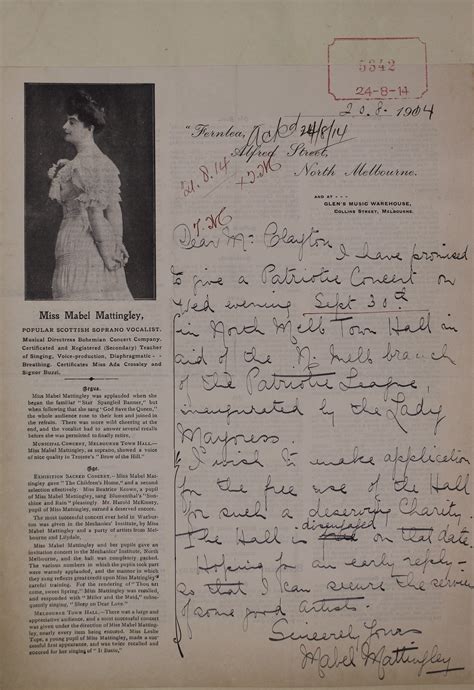 5342
24-8-14
20.8.1914
"Fernlea,
24/8/14
Alfred Street,
North Melbourne.
21.8.14
AND AT
GLEN'S MUSIC WAREHOUSE,
COLLINS STREET, MELBOURNE.
Dear Mr Clayton
I have promised
to give a Patriotic Concert on
Wed evening Sept 30th
in North Melb Town Hall in
aid of the N. Melb branch
of the Patriotic League,
inaugurated by the Lady
Mayoress.
I wish to make application
for the free use of the Hall
for such a deserving Charity.
The Hall is disengaged on that date.
Hoping for an early reply-
so that I can secure the services
of some good artists.
Sincerely Yours
Mabel Mattingley
Miss Mabel Mattingley,
POPULAR SCOTTISH SOPRANO VOCALIST.
Musical Directress Bohemian Concert Company.
Certificated and Registered (Secondary) Teacher
of Singing, Voice-production, Diaphragmatic -
Breathing. Certificates Miss Ada Crossley and
Signor Buzzi.
Argus.
Miss Mabel Mattingley was applauded when she
began the familiar "Star Spangled Banner," but
when following that she sang "God Save the Queen,"
the whole audience rose to their feet and joined in
the refrain. There was more wild cheering at the
end, and the vocalist had to answer several recalls
before she was permitted to finally retire.
MUNICIPAL CONCERT, MELBOURNE TOWN HALL.—
Miss Mabel Mattingley, as soprano, showed a voice
of nice quality in Trotere's "Brow of the Hill."
Age.
EXHIBITION SACRED CONCERT.—Miss Mabel Mat-
tingley gave "The Children's Home," and a second
selection effectively. Miss Beatrice Brown, a pupil
of Miss Mabel Mattingley, sang Blumenthal's "Sun-
shine and Rain" pleasingly. Mr. Harold McKenny,
pupil of Miss Mattingley, earned a deserved encore.
The most successful concert ever held in Warbur-
ton was given in the Mechanics' Institute, by Miss
Mabel Mattingley and party of artists from Mel-
bourne and Lilydale.
Miss Mabel Mattingley and her pupils gave an
invitation concert in the Mechanics' Institute, North
Melbourne, and the hall was completely packed.
The various numbers in which the pupils took part
were warmly applauded, and the manner in which
they sang reflects great credit upon Miss Mattingley's
careful training. For the rendering of "Thou art
come, sweet Spring," Miss Mattingley was recalled,
and responded with "Miller and the Maid," subse-
quently singing, "Sleep so Dear Love."
MELBOURNE TOWN HALL.—There was a large and
appreciative audience, and a most successful concert
was given under the direction of Miss Mabel Matting-
ley, nearly every item being encored. Miss Leslie
Tope, a young pupil of Miss Mattingley, made a suc-
cessful first appearance, and was twice recalled and
encored for her singing of "Il Bacio."